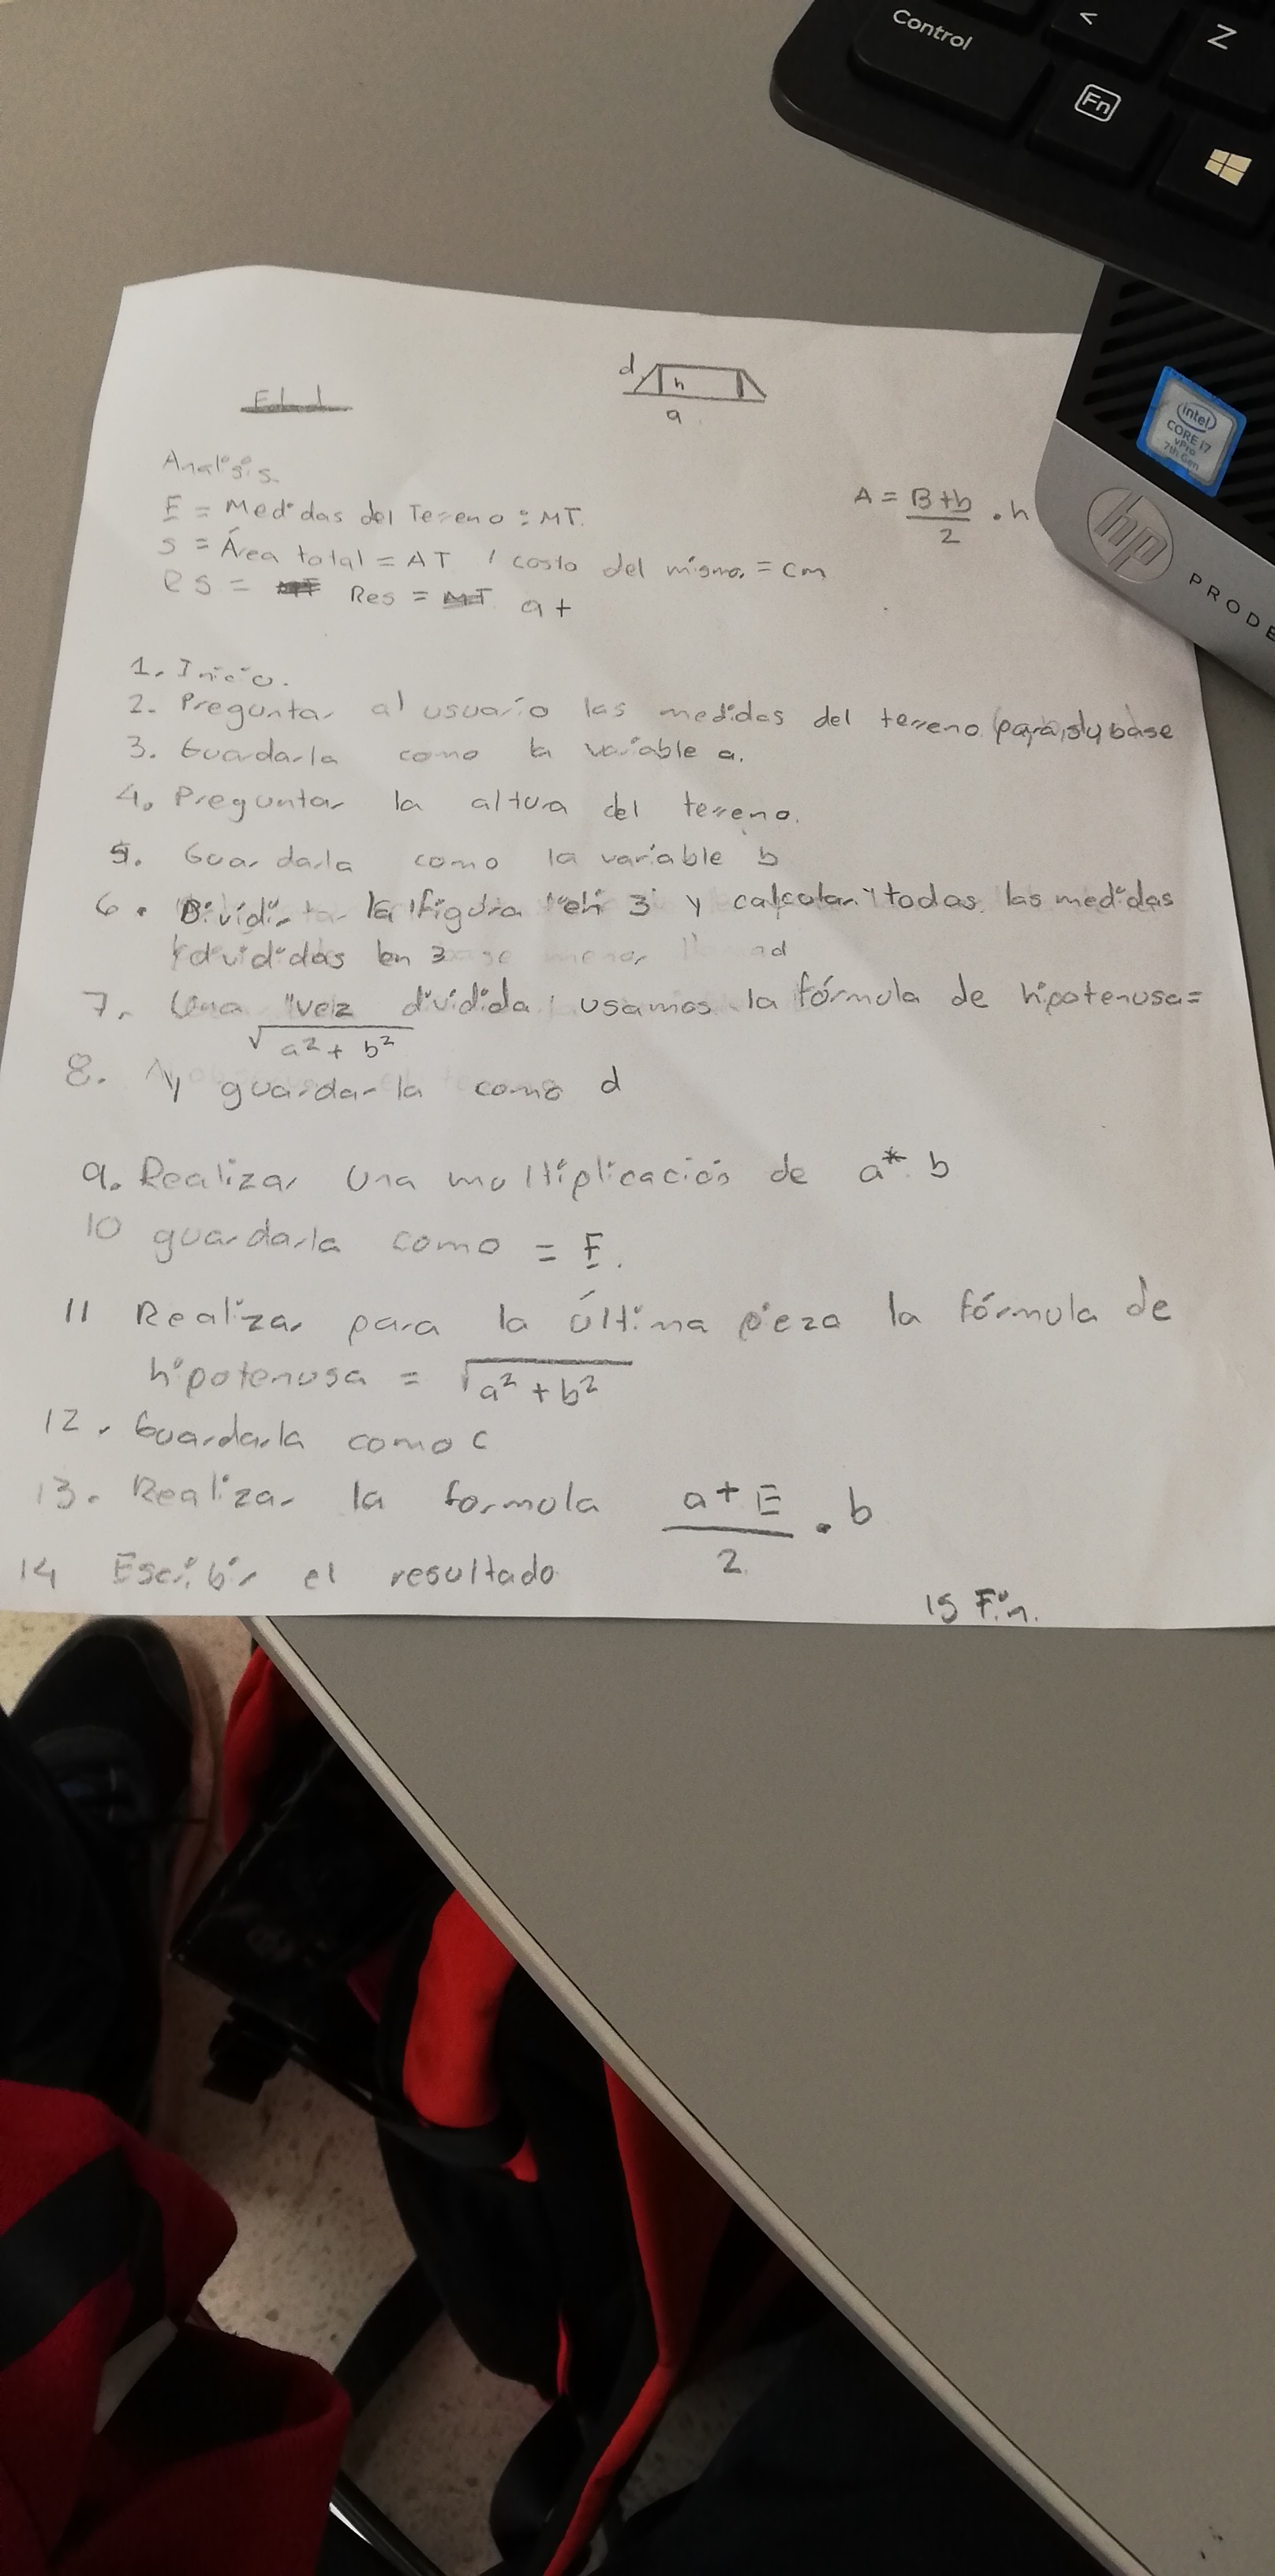 Control
<
Z
Fn
intel
CORE i7
vPro
7th Gen
hp
PRODE
d
h
a
Analisis.
E = Medidas del Terreno : MT.
A = B+b / 2 . h
S = Área total = AT / costo del mismo. = cm
RS = Res = MT a +
1. Inicio.
2. Preguntar al usuario las medidas del terreno para su base
3. Guardarla como la variable a.
4. Preguntar la altura del terreno.
5. Guardarla como la variable b
6. Dividir la figura en 3 y calcular todas las medidas
divididas en 3
7. Una vez dividida, usamos la fórmula de hipotenusa=
√a² + b²
8. y guardarla como d
9. Realizar una multiplicación de a* b
10 guardarla como = E.
11 Realizar para la última pieza la fórmula de
hipotenusa = √a² + b²
12. Guardarla como c
13. Realizar la formula a + E / 2 . b
14 Escribir el resultado
15 Fin.